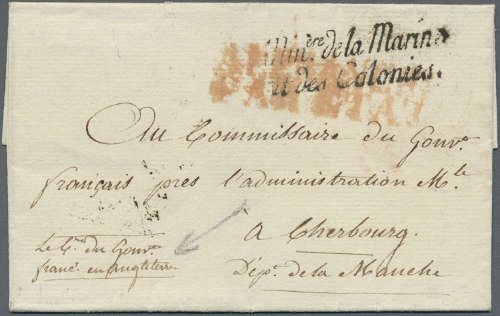 Min.ère de la Marine
et des Colonies.
Au Commissaire du Gouv.t
français près l'administration M.le
a Cherbourg.
Dép.t de la Manche
Le C.en du Gouv.t
franc.s en angleterre